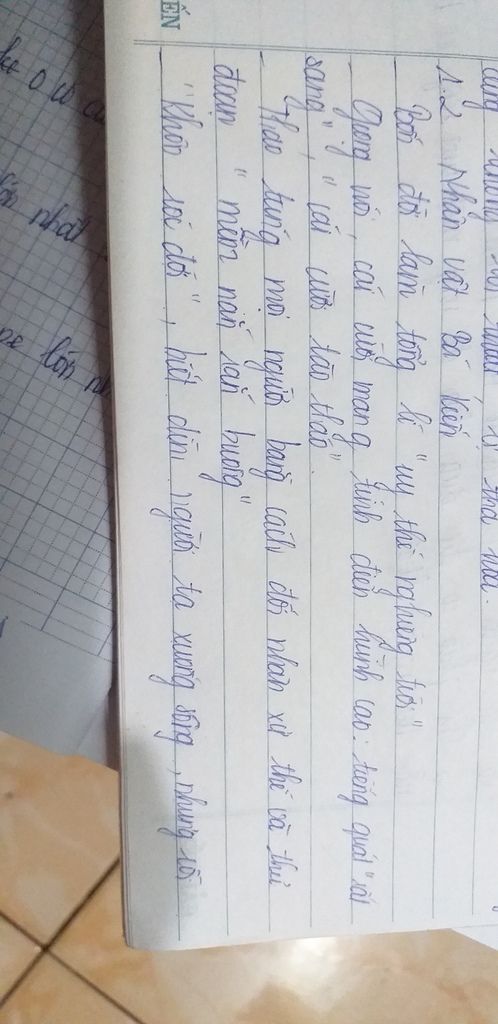 1.2 Nhân vật Bá Kiến
Bốn đời làm tổng lí "uy thế nghiêng trời"
Giọng nói, cái cười mang tính điển hình cao: tiếng quát "rất
sang", "cái cười tào tháo".
Thao túng mọi người bằng cách đối nhân xử thế và thủ
đoạn "mềm nắn rắn buông"
"Khôn róc đời", biết dìm người ta xuống sông, nhưng rồi
ẾN
lớn nhất